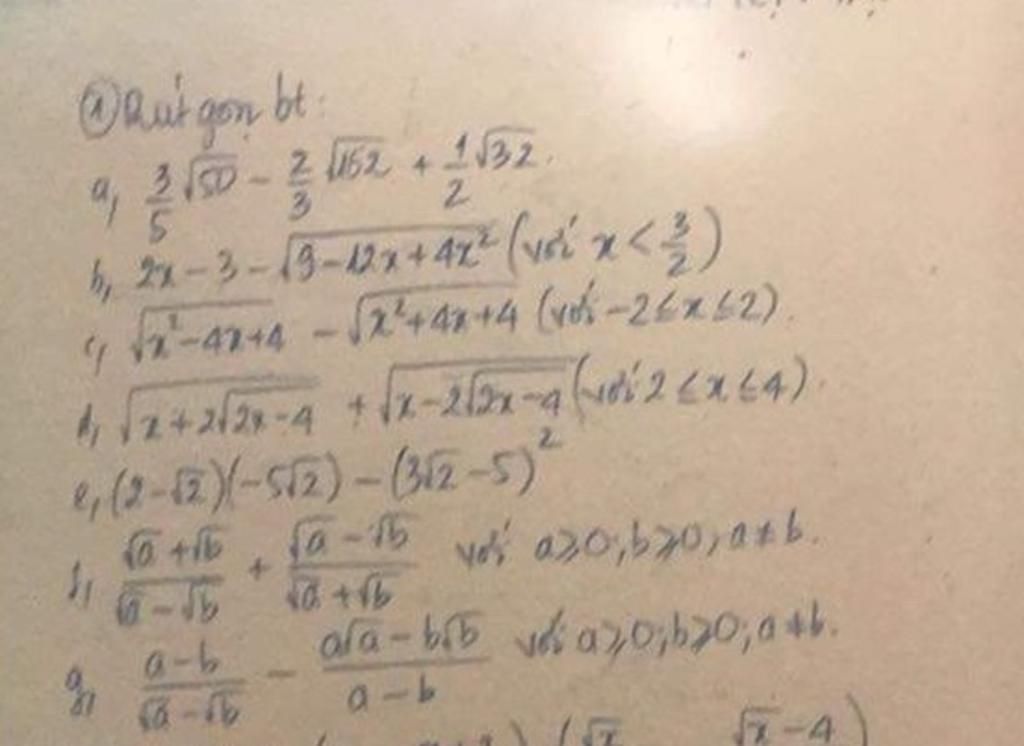 ① Rút gọn bt:
a, 3/5 √50 - 2/3 √162 + 1/2 √32.
b, 2x - 3 - √(9 - 12x + 4x²) (với x < 3/2)
c, √(x² - 4x + 4) - √(x² + 4x + 4) (với -2 ≤ x ≤ 2).
d, √(x + 2√(2x - 4)) + √(x - 2√(2x - 4)) (với 2 ≤ x ≤ 4).
e, (2 - √2)(-5√2) - (3√2 - 5)²
f, (√a + √b)/(√a - √b) + (√a - √b)/(√a + √b) với a ≥ 0; b ≥ 0; a ≠ b.
g, (a - b)/(√a - √b) - (a√a - b√b)/(a - b) với a ≥ 0; b ≥ 0; a ≠ b.
√x √x - 4